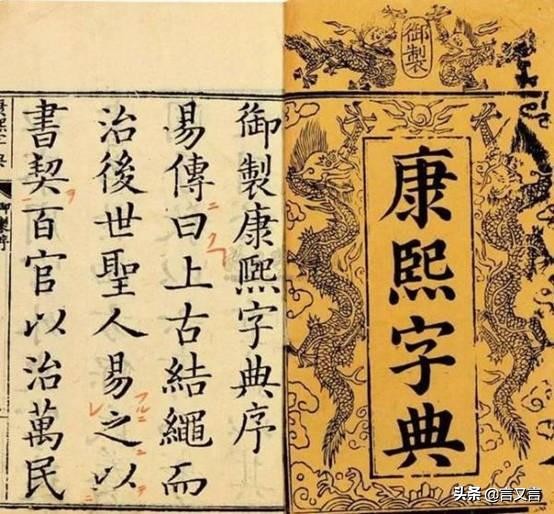 御製
康熙字典
御製康熙字典序
易傳曰上古結繩而
治後世聖人易之以
書契百官以治萬民
头条 @言又言